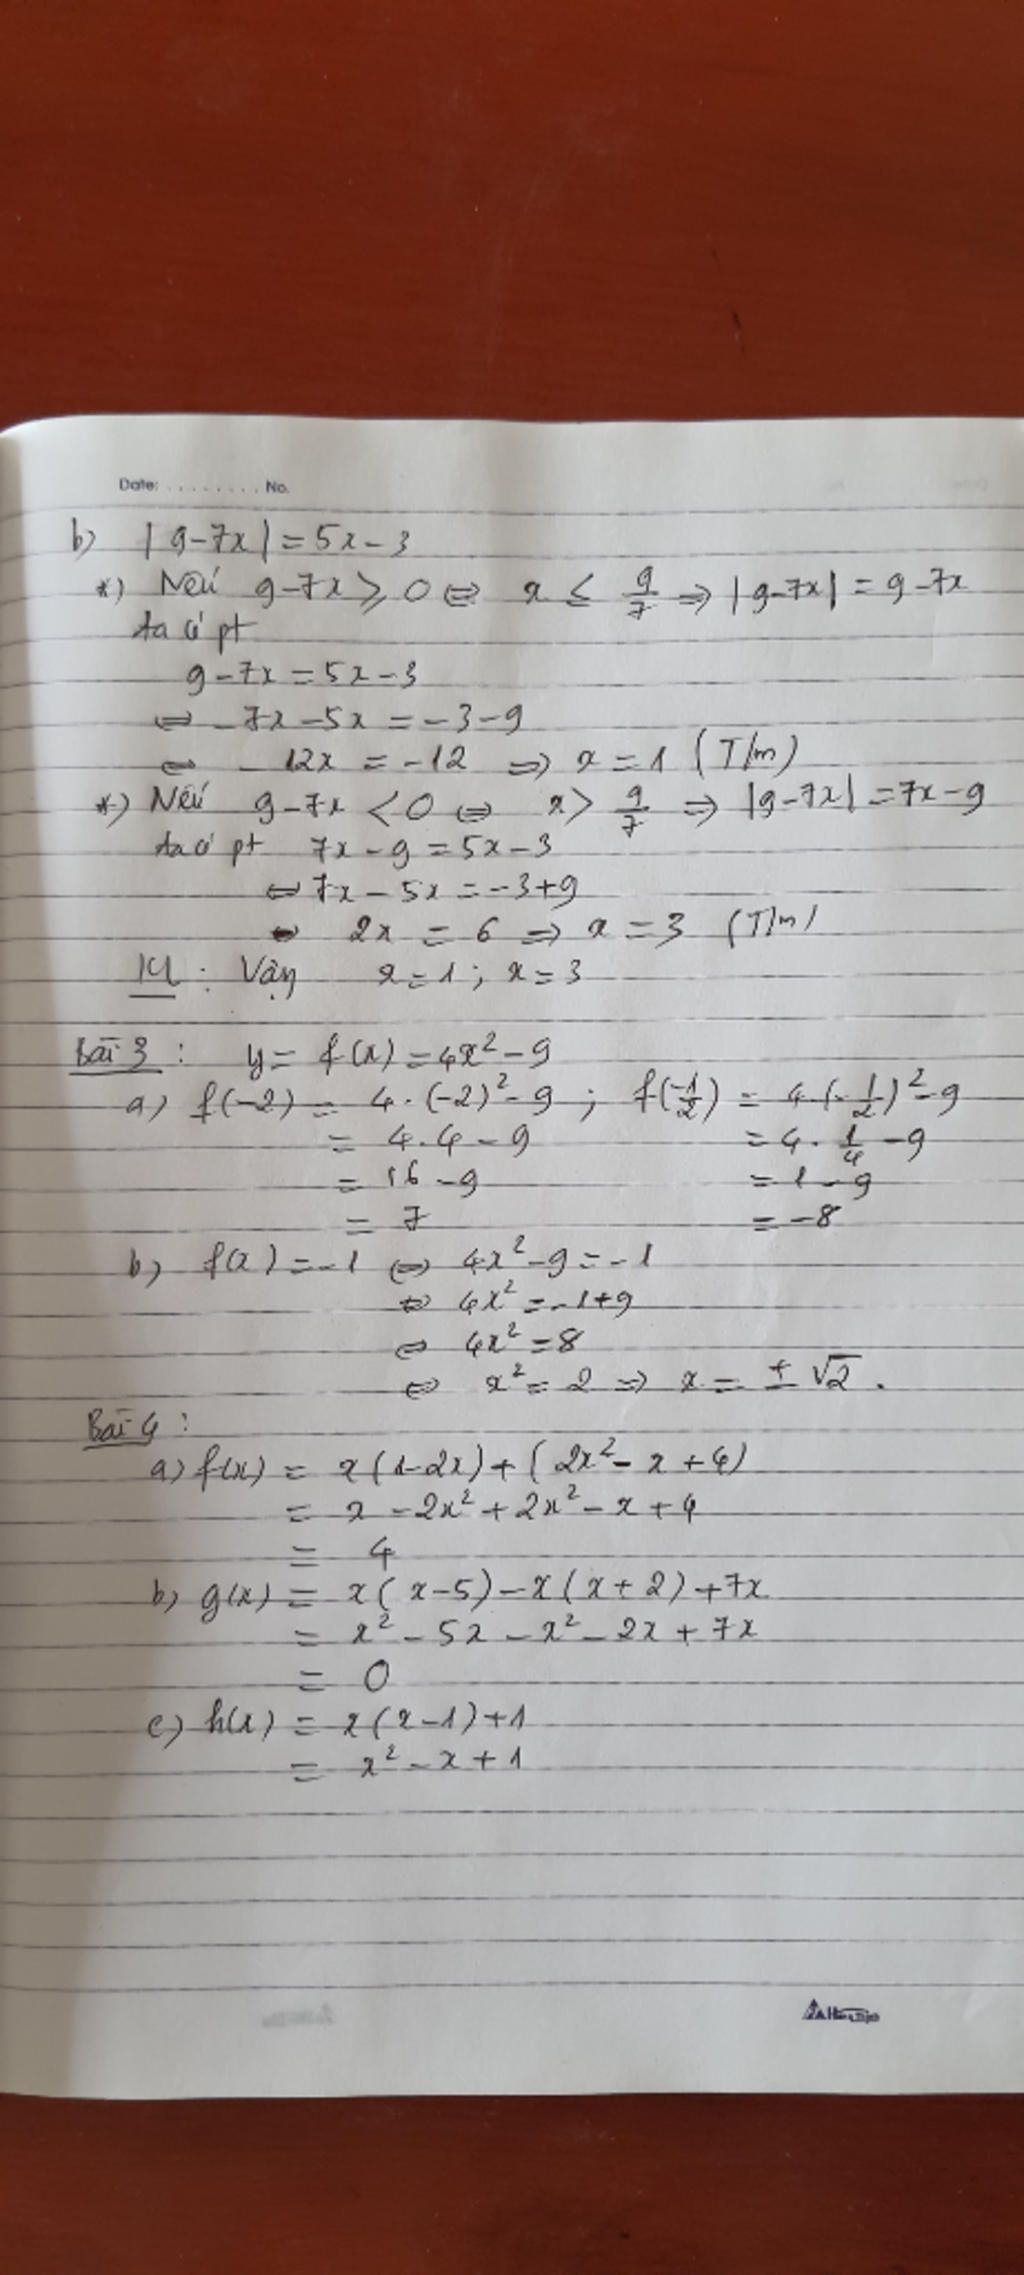 Date: ........ No.
b) |9-7x| = 5x-3
*) Nếu 9-7x ≥ 0 ⇔ x ≤ 9/7 ⇒ |9-7x| = 9-7x
ta có pt
9-7x = 5x-3
⇔ -7x-5x = -3-9
⇔ -12x = -12 ⇒ x = 1 (T/m)
*) Nếu 9-7x < 0 ⇔ x > 9/7 ⇒ |9-7x| = 7x-9
ta có pt 7x-9 = 5x-3
⇔ 7x-5x = -3+9
⇔ 2x = 6 ⇒ x = 3 (T/m)
KL: Vậy x=1; x=3
Bài 3: y = f(x) = 4x²-9
a) f(-2) = 4.(-2)²-9; f(-1/2) = 4(-1/2)²-9
= 4.4-9 = 4.1/4-9
= 16-9 = 1-9
= 7 = -8
b) f(x) = -1 ⇔ 4x²-9 = -1
⇔ 4x² = -1+9
⇔ 4x² = 8
⇔ x² = 2 ⇒ x = ±√2.
Bài 4:
a) f(x) = x(1-2x)+(2x²-x+4)
= x-2x²+2x²-x+4
= 4
b) g(x) = x(x-5)-x(x+2)+7x
= x²-5x-x²-2x+7x
= 0
c) h(x) = x(x-1)+1
= x²-x+1